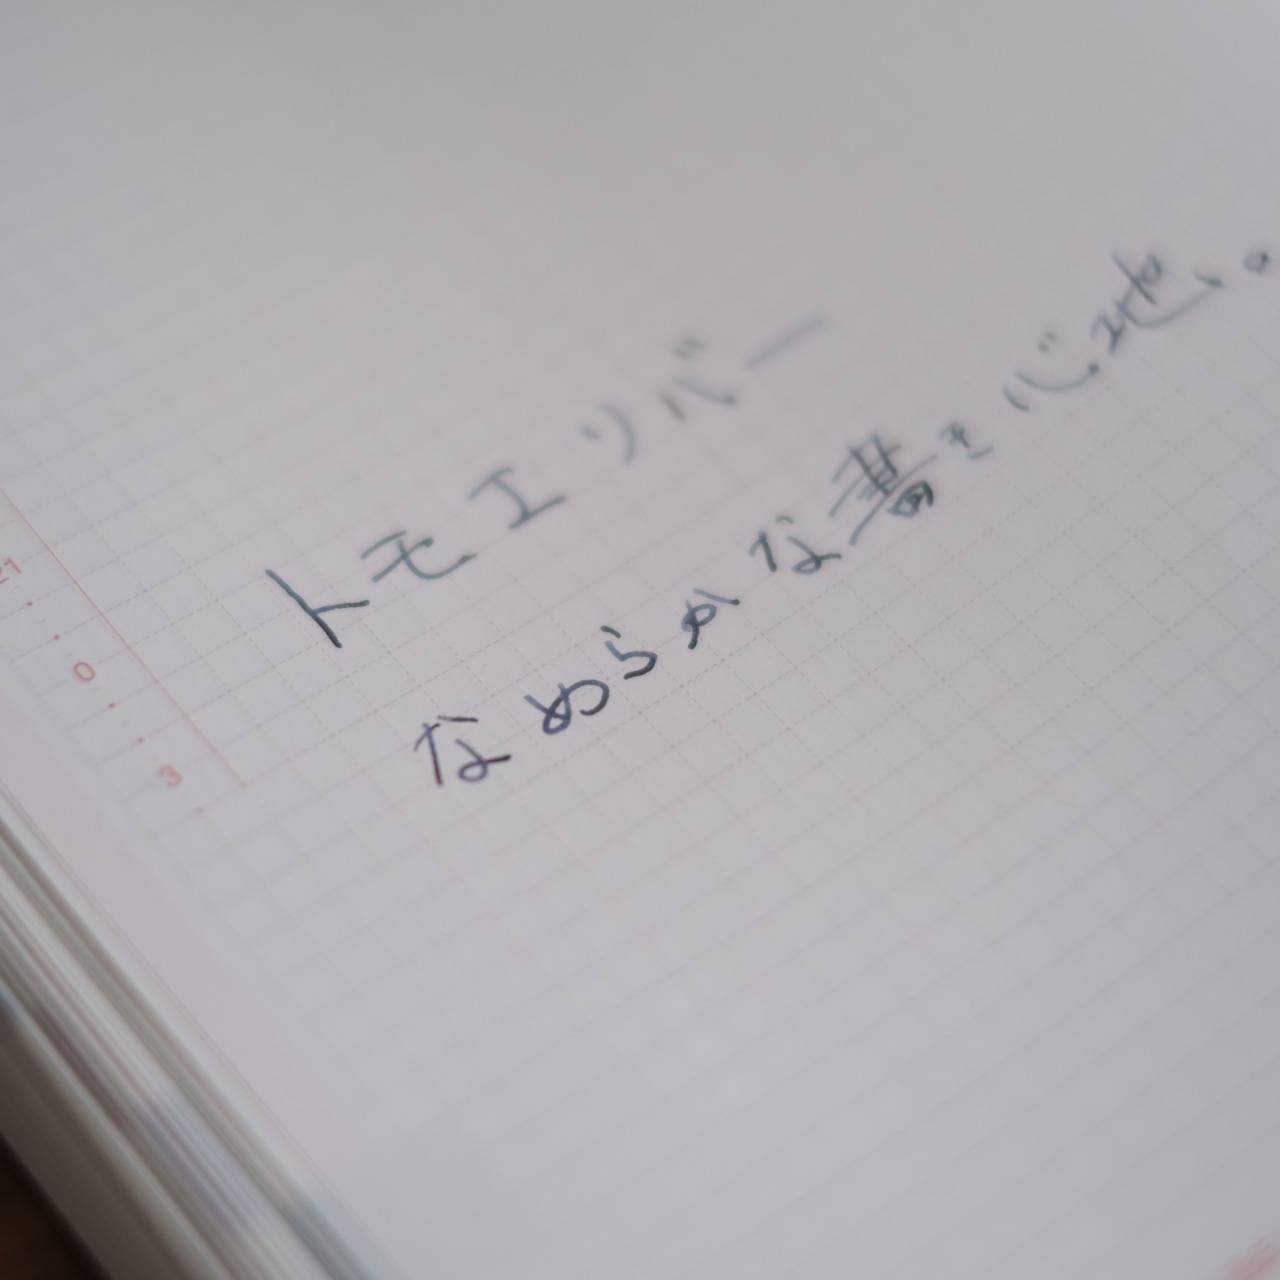 トモエリバー
なめらかな書き心地。
21
0
3